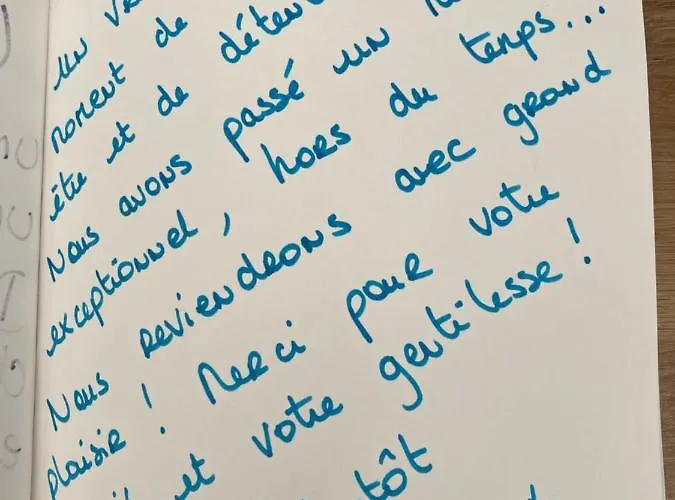 un
moment de
être et de
Nous avons passé un
exceptionnel, hors du temps...
Nous reviendrons avec grand
plaisir ! Merci pour votre
et votre gentillesse !